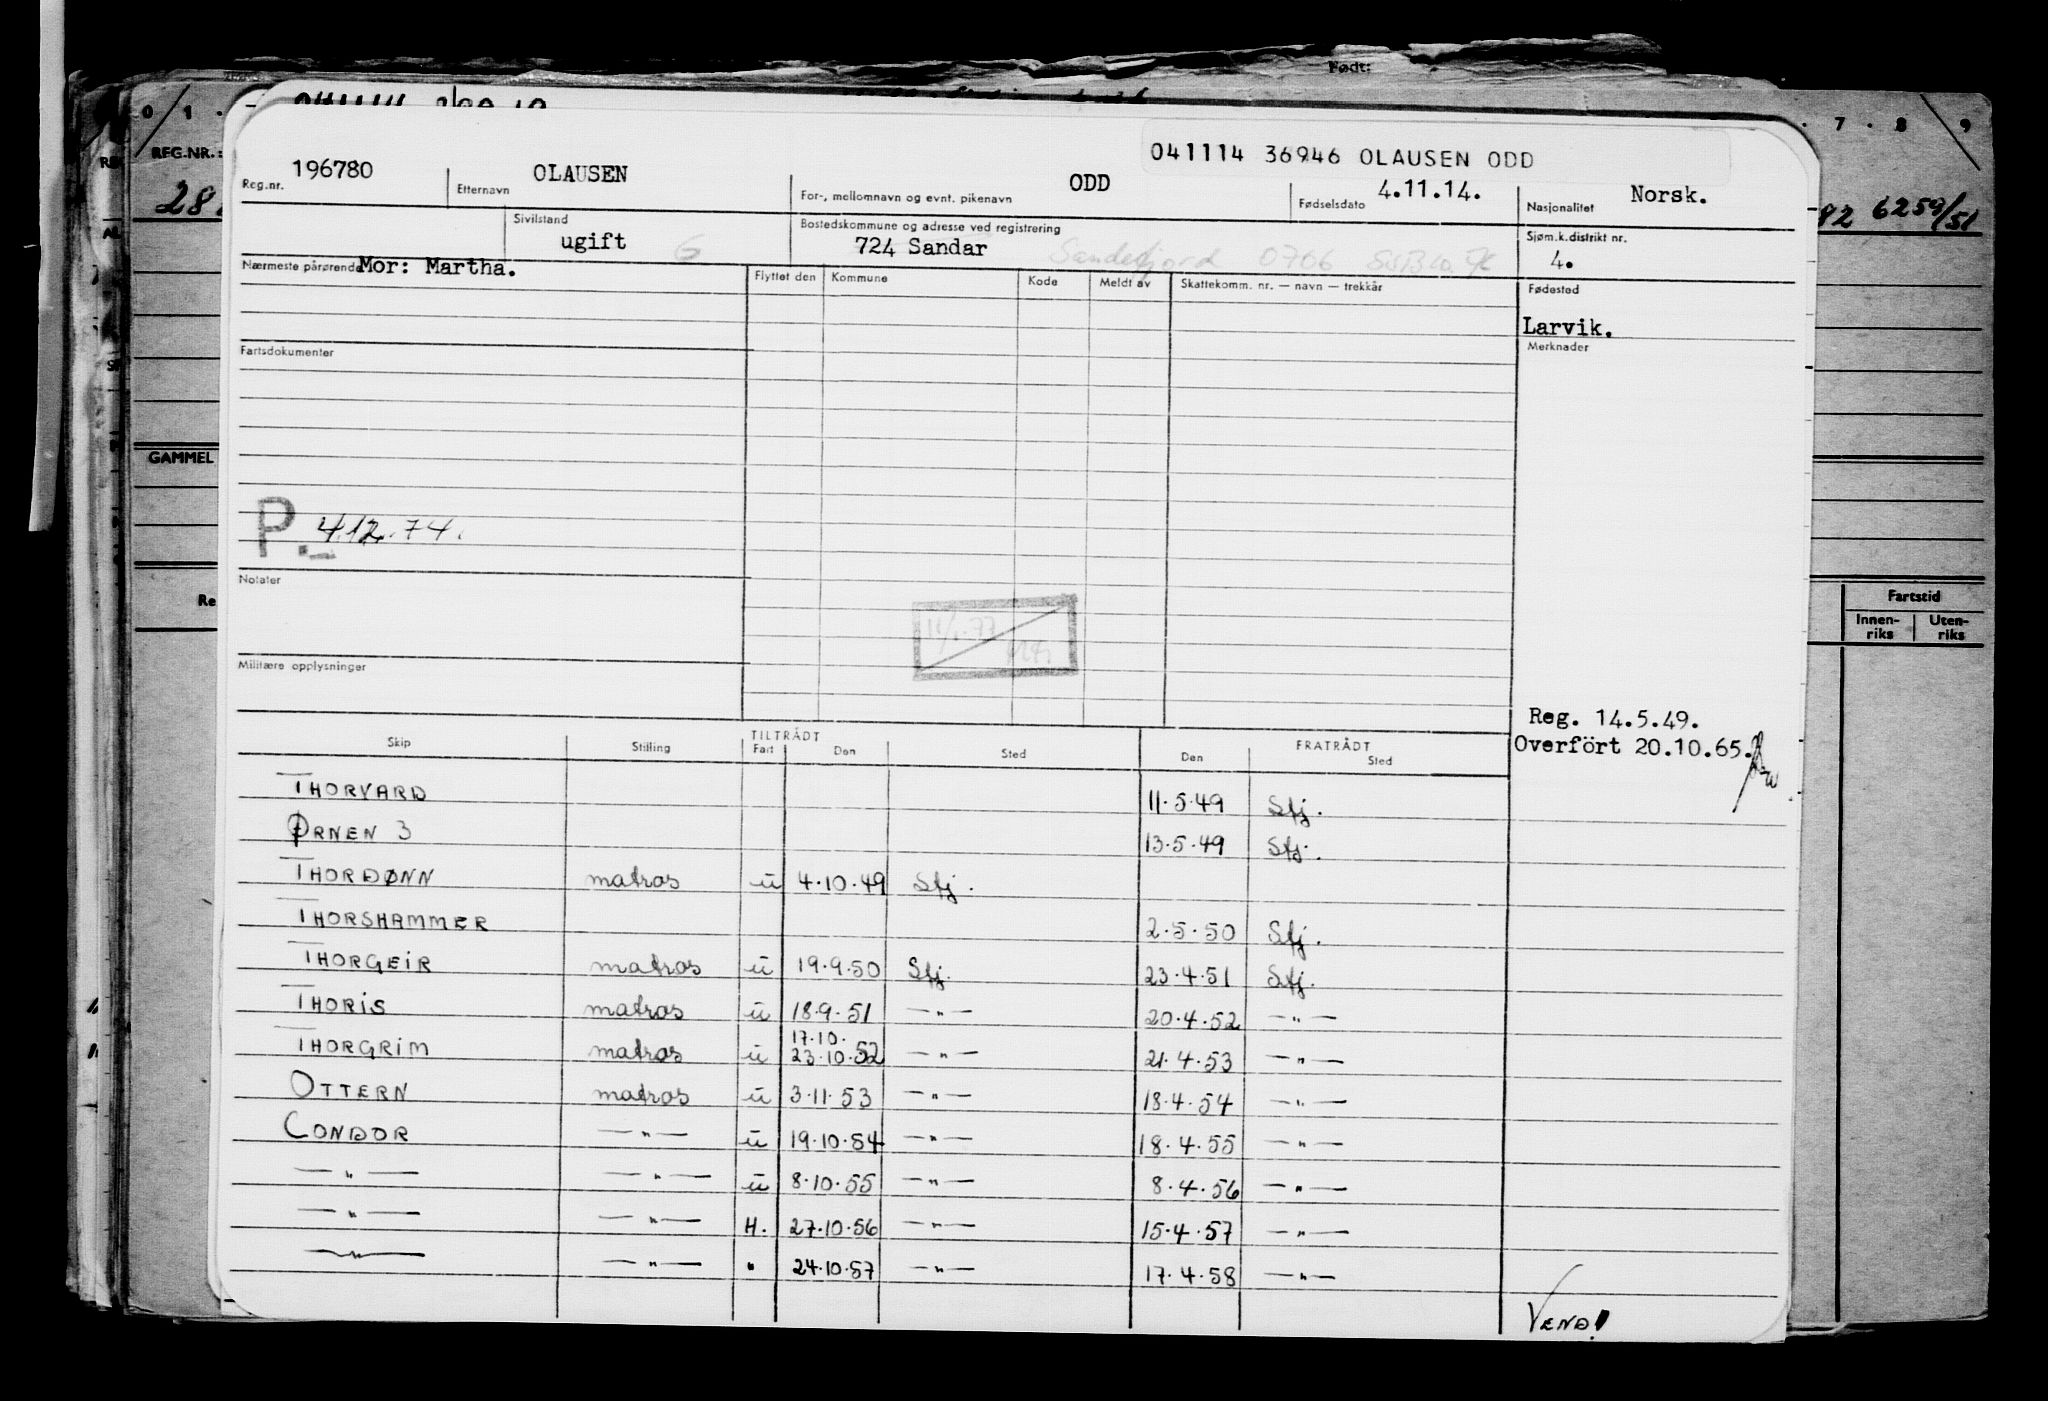 Født:
0 1 . 7 . 8 9
REG.NR.:
041114 36946 OLAUSEN ODD
196780 OLAUSEN ODD 4.11.14. Norsk.
Reg.nr. Etternavn For-, mellomnavn og evnt. pikenavn Fødselsdato Nasjonalitet
28 82 6259/51
Sivilstand Bostedskommune og adresse ved registrering Sjøm.k.distrikt nr.
ugift G 724 Sandar Sandefjord 0706 4.
Nærmeste pårørende Mor: Martha. Flyttet den Kommune Kode Meldt av Skattekomm. nr. — navn — trekkår Fødested
Larvik.
Fartsdokumenter Merknader
GAMMEL
P. 4.12.74.
Notater
Fartstid
Innen-riks Uten-riks
11/1.77
Militære opplysninger
Reg. 14.5.49.
Overfört 20.10.65.
TILTRÅDT FRATRÅDT
Skip Stilling Fart Den Sted Den Sted
THORVARD 11.5.49 Sfj.
ØRNEN 3 13.5.49 Sfj.
THORDØNN matros u 4.10.49 Sfj.
THORSHAMMER 2.5.50 Sfj.
THORGEIR matros u 19.9.50 Sfj. 23.4.51 Sfj.
THORIS matros u 18.9.51 —"— 20.4.52 —"—
17.10.
THORGRIM matros u 23.10.52 —"— 21.4.53 —"—
OTTERN matros u 3.11.53 —"— 18.4.54 —"—
CONDOR —"— u 19.10.54 —"— 18.4.55 —"—
—"— —"— u 8.10.55 —"— 8.4.56 —"—
—"— —"— H. 27.10.56 —"— 15.4.57 —"—
—"— —"— " 24.10.57 —"— 17.4.58 —"—
VEND!